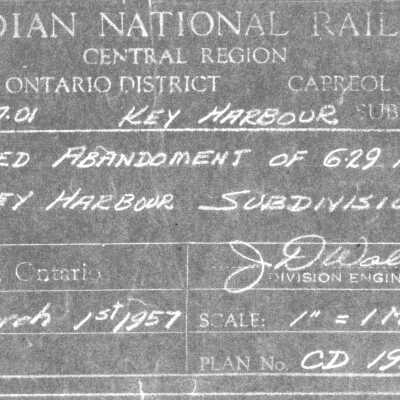 DIAN NATIONAL RAIL
CENTRAL REGION
ONTARIO DISTRICT CAPREOL
7.01 KEY HARBOUR SUB
ED ABANDOMENT OF 6.29
EY HARBOUR SUBDIVISIO
Ontario J D Wal
DIVISION ENGIN
rch 1st 1957 SCALE: 1" = 1 M
PLAN No. CD 19